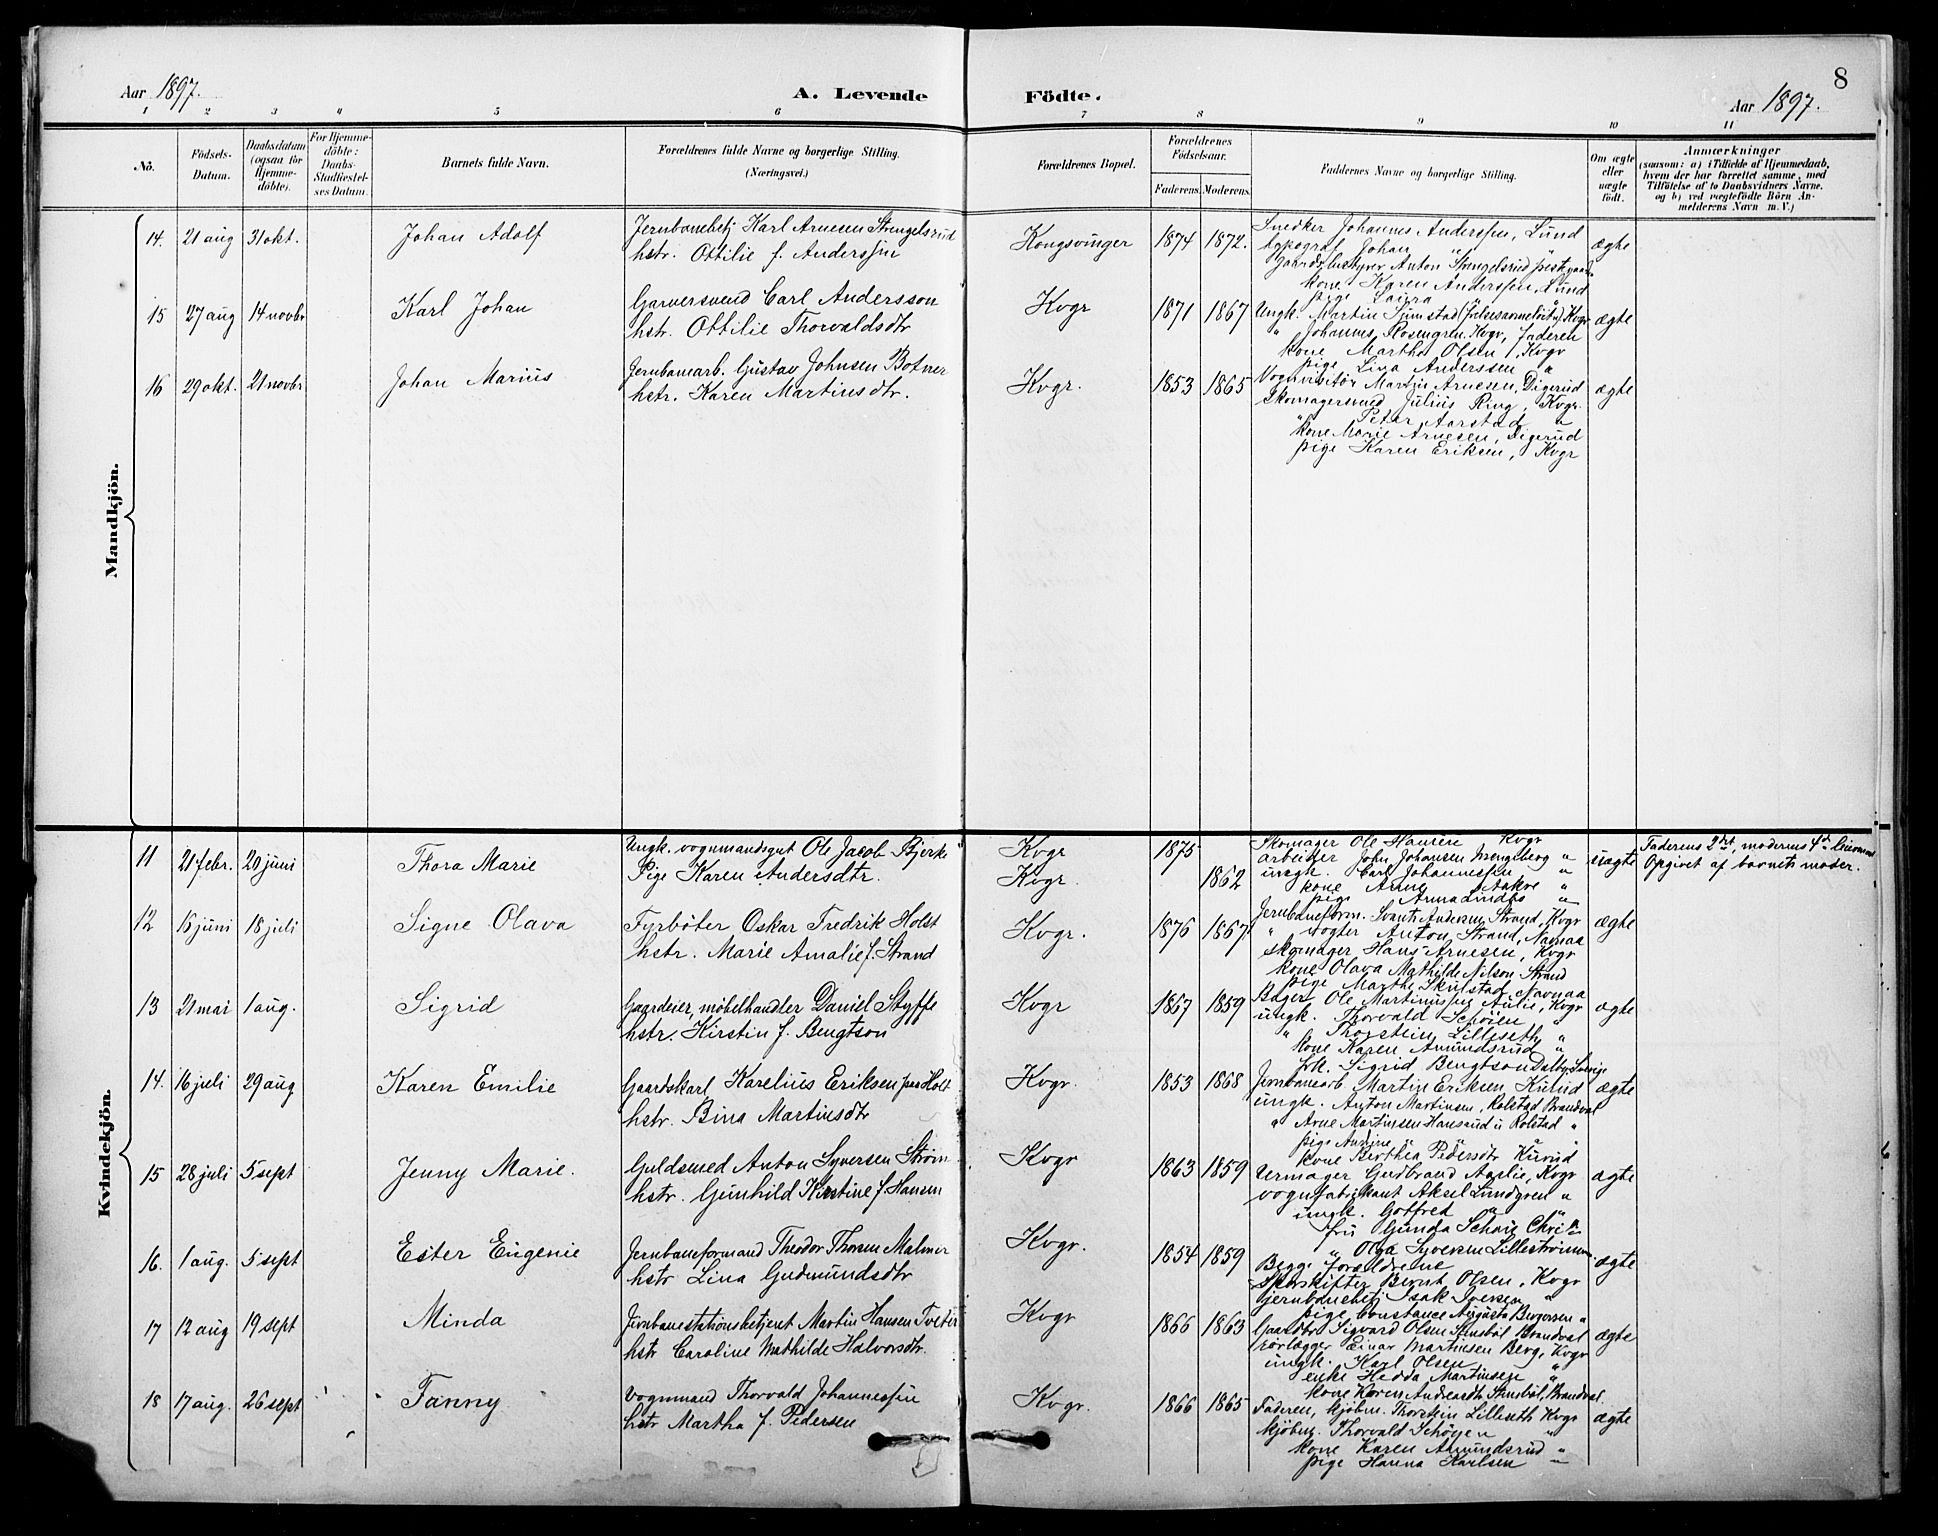 8
Aar 1897. A. Levende Födte. Aar 1897.
1 2 3 4 5 6 7 8 9 10 11
No.
Födsels-
Datum.
Daabsdatum
(ogsaa for
Hjemme-
döbte).
For Hjemme-
döbte:
Daabs-
Stadfæstel-
ses Datum.
Barnets fulde Navn.
Forældrenes fulde Navne og borgerlige Stilling.
(Næringsvei.)
Forældrenes Bopæl.
Forældrenes
Födselsaar.
Faderens. Moderens.
Faddernes Navne og borgerlige Stilling.
Om ægte
eller
uægte
født.
Anmærkninger
(saasom: a) i Tilfælde af Hjemmedaab,
hvem der har forrettet samme, med
Tilföielse af to Daabsvidners Navne,
og b) ved uægtefödte Börn An-
melderens Navn m. V.)
Mandkjön.
14. 21 aug 31 okt. Johan Adolf
Jernbanebetj Karl Arnesen Strengelsrud
hstr. Ottilie f. Anderssen
Kongsvinger 1874 1872.
Snedker Johannes Anderssen, Lund
typograf Johan " "
gaardsbestyrer Anton Strengelsrud
kone Karen Anderssen, Lund
pige Laura "
ægte
15 27 aug 14 novbr Karl Johan
Garversvend Carl Andersson
hstr. Ottilie Thorvaldsdtr
Kvgr 1871 1867
Ungk. Martin Sjunstad Kvgr
" Johannes Rosengren Kvgr, faderen
kone Martha Olsen, Kvgr
pige Lina Anderssen "
ægte
16 29 okt. 21 novbr Johan Marius
Jernbanearb. Gustav Johnsen Botner
hstr. Karen Martinsdtr.
Kvgr. 1853 1865
Vognvisitör Martin Arnesen, Digerud
Skomagersvend Julius Ring, Kvgr.
" Peter Aarstad "
kone Marie Arnesen, Digerud
pige Karen Eriksen, Kvgr
ægte
Kvindekjön.
11 21 febr. 20 juni Thora Marie
Ungk. vognmandsgut Ole Jacob Bjerke
Pige Karen Andersdtr.
Kvgr
Kvgr.
1875
1862
Skomager Ole Hansen Kvgr
arbeider John Johansen Mengeberg "
ungk. Carl Johannessen "
kone Anne Aakre "
pige Anna Lindbo "
uægte
Faderens 2det, moderens 4de leierm
Opgivet af barnets moder.
12 16 juni 18 juli Signe Olava
Fyrböter Oskar Fredrik Holst
hstr. Marie Amalie f. Strand
Kvgr. 1876 1867
Jernbaneform. Svante Andersen Strand, Kvgr
" vogter Anton Strand, Navnaa
skomager Hans Arnesen, Kvgr
kone Olava Mathilde Nilson Strand
pige Marthe Skulstad Navnaa
ægte
13 21 mai 1 aug. Sigrid
Gaardeier, möbelhandler Daniel Styffe
hstr. Kirstin f. Bengtson
Kvgr 1867 1859
Bager Ole Martinussen Aulie, Kvgr
ungk. Thorvald Schöien "
" Thorstein Lilleseth "
kone Karen Amundsrud "
frk. Sigrid Bengtson Dalby, Sverige
ægte
14. 16 juli 29 aug Karen Emilie
Gaardskarl Karelius Eriksen paa Holt
hstr. Bina Martinsdtr
Kvgr. 1853 1868
Jernbanearb. Martin Eriksen, Kurud
ungk. Anton Martinsen, Rolstad Brandval
" Arne Martinsen Hansrud u Rolstad "
pige Andine " "
kone Birthea Pedersdtr Kurud
ægte
15 28 juli 5 sept Jenny Marie.
Guldsmed Anton Syversen Ström
hstr. Gunhild Kirstine f. Hansen
Kvgr 1863 1859
Urmager Gudbrand Aaslie, Kvgr
vognfabrikant Aksel Lundgren "
ungk. Gotfred " "
fru Gunda Schøie Chria
" Olga Syversen Lilleströmmen
ægte
16. 1 aug. 5 sept Ester Eugenie
Jernbaneformand Theodor Thorsen Malmer
hstr Lina Gudmundsdtr
Kvgr. 1854 1859
Begge forældrene
Sporskifter Bernt Olsen, Kvgr
jernbanebetj Isak Iversen "
pige Constance Augusta Borgersen "
ægte
17 12 aug 19 sept Minda
Jernbanestationsbetjent Martin Hansen Tveter
hstr Caroline Mathilde Halvorsdtr.
Kvgr 1866 1863
Gaardbr Sigvard Olsen Stensböl Brandval
rörlægger Einar Martinsen Berg, Kvgr
ungk. Karl Olsen "
enke Hedda Martinsen "
kone Karen Andreasdtr Stensböl, Brandval.
ægte
18 17 aug. 26 sept Fanny
Vognmand Thorvald Johannessen
hstr Martha f. Pedersen
Kvgr. 1866 1865
Faderen, kjöbm. Thorstein Lilleseth Kvgr
kjöbm. Thorvald Schöyen "
kone Karen Amundsrud "
pige Hanna Karlsen "
ægte